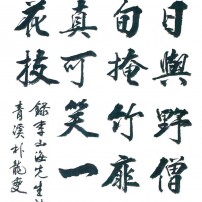 日與野僧
旬掩竹扉
真可笑一
花技
錄李山海先生詩
青溪朴龍雯